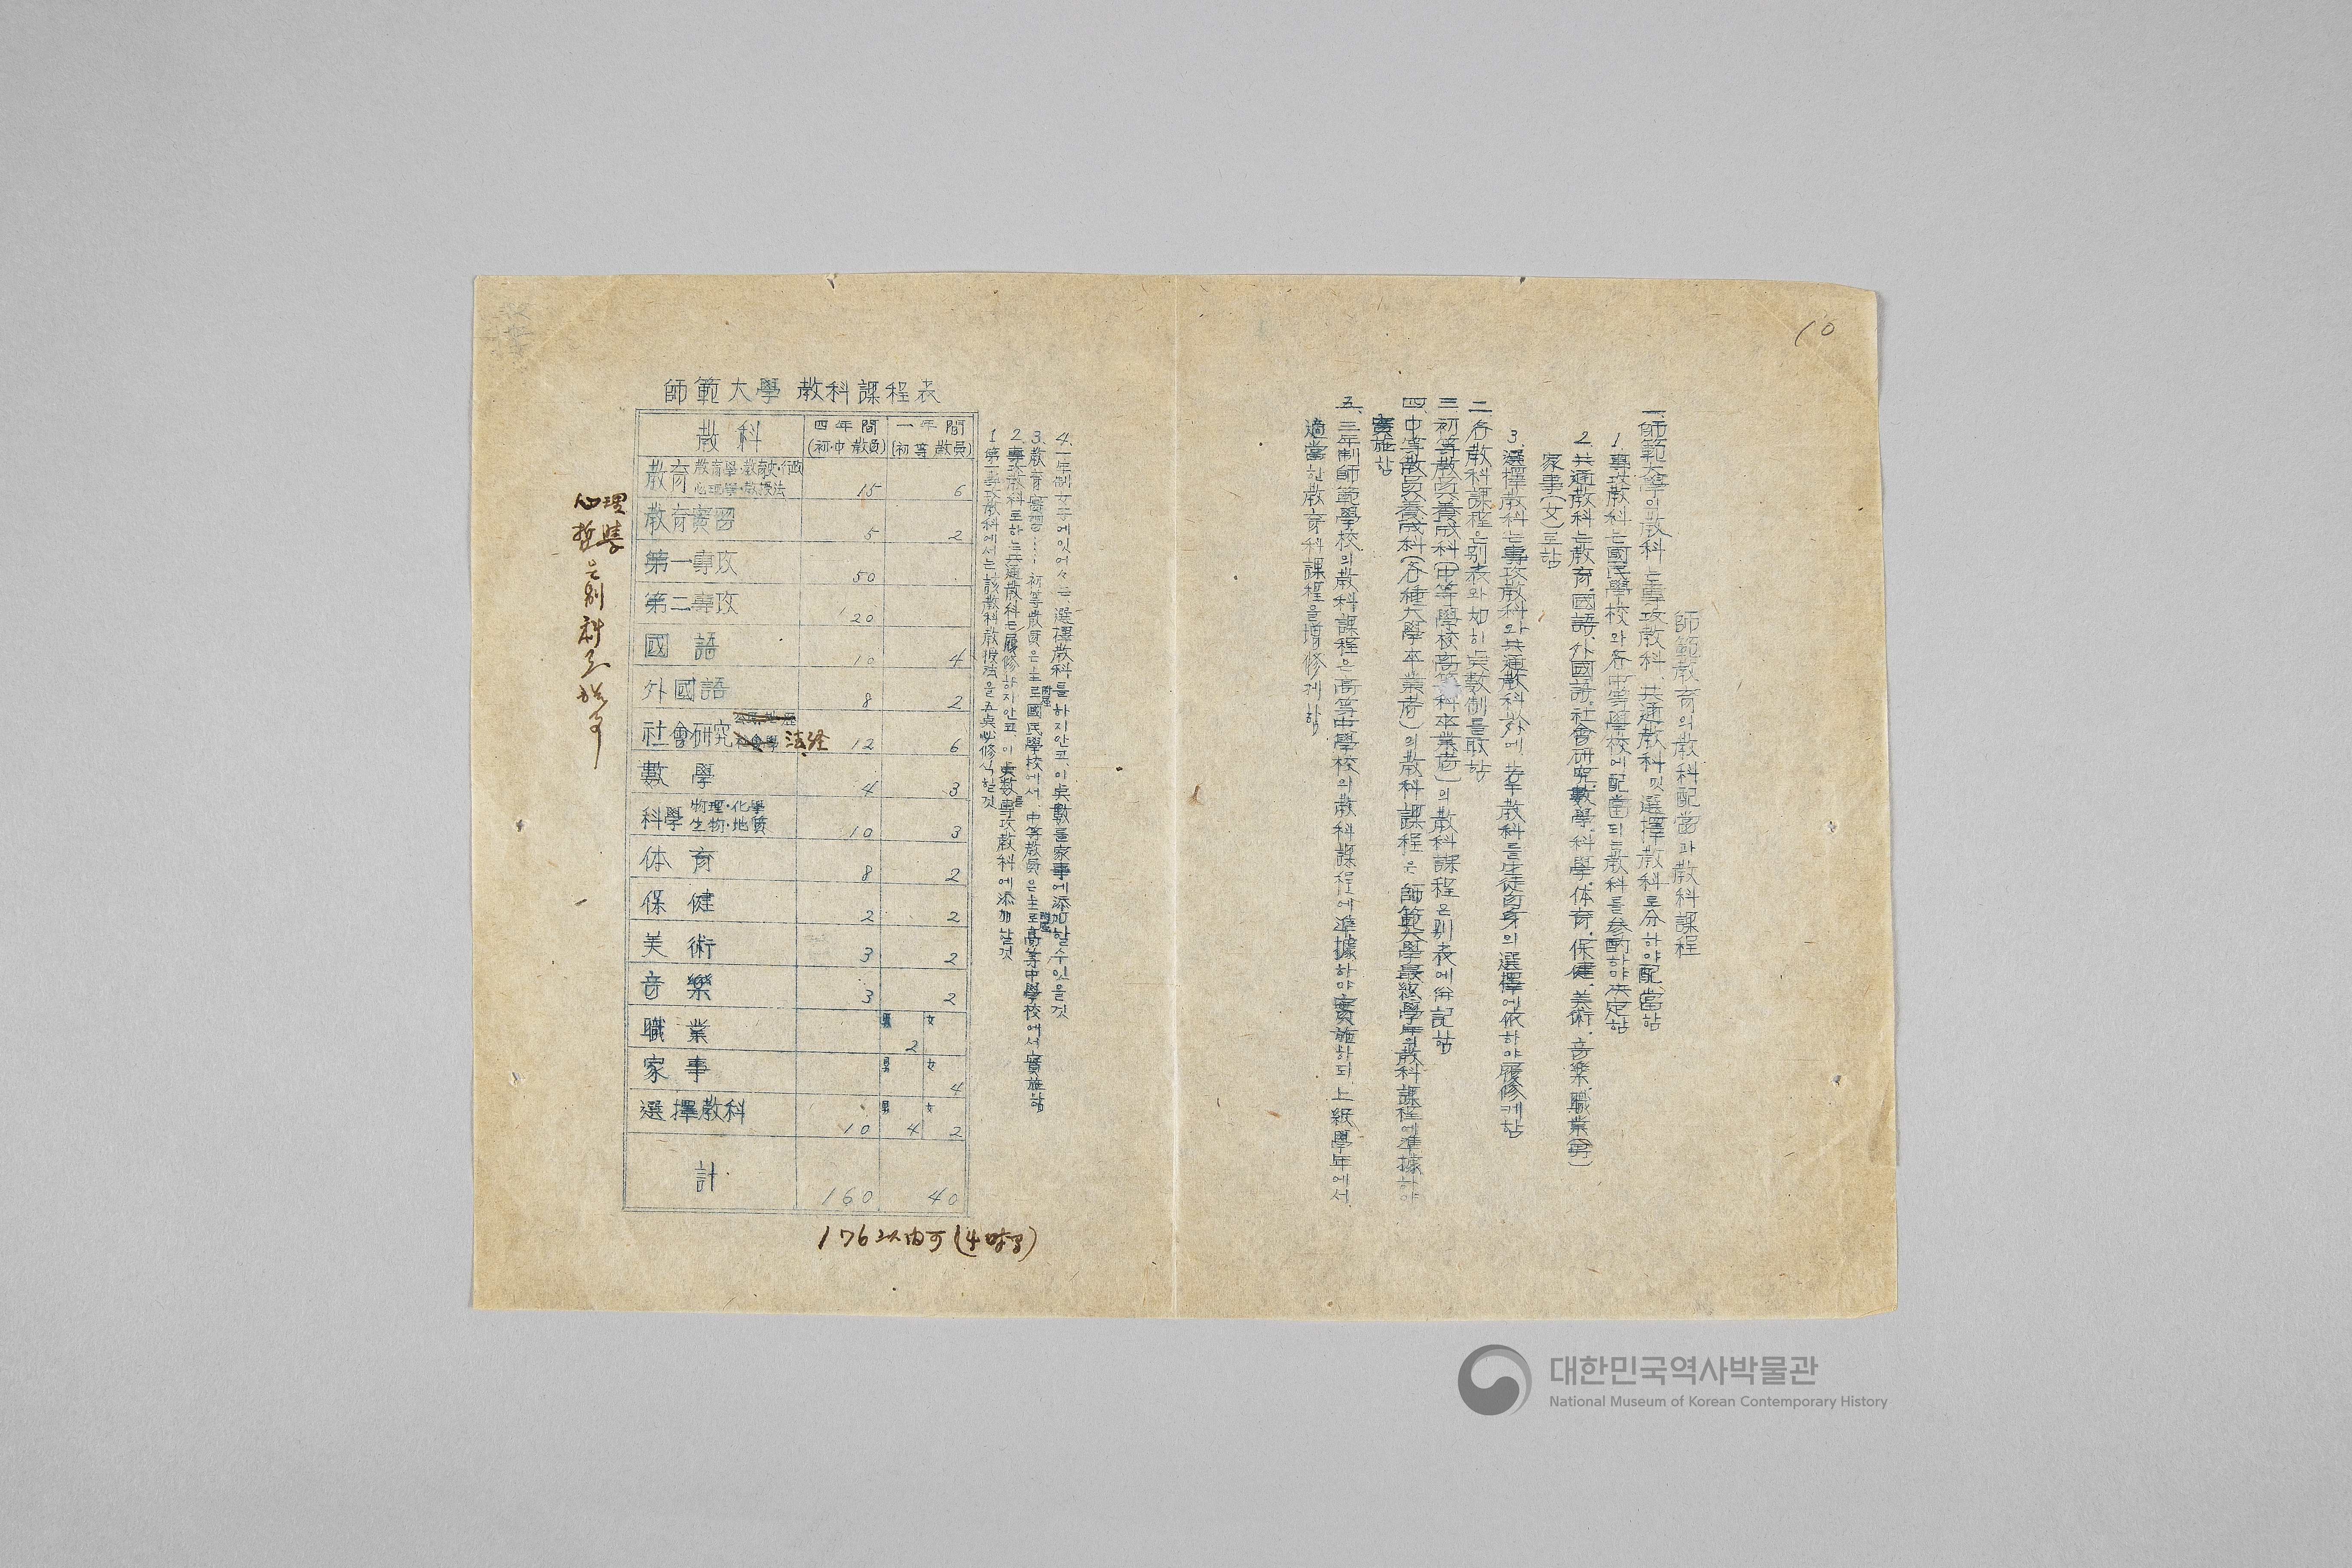 10
師範教育의敎科配當과敎科課程
一、師範大學의敎科는專攻敎科、共通敎科및選擇敎科로分하야配當함
1 專攻敎科는國民學校와各中等學校에配當되는敎科를參酌하야決定함
2. 共通敎科는敎育、國語、外國語、社會硏究、數學、科學、体育、保健、美術、音樂、職業(男)
家事(女)로함
3. 選擇敎科는專攻敎科와共通敎科外에若干敎科를生徒自身의選擇에依하야履修케함
二、各敎科課程은別表와如히点數制를取함
三、初等敎員養成科(中等學校高等科卒業者)의敎科課程은別表에倂記함
四、中等敎員養成科(各種大學卒業者)의敎科課程은師範大學最終學年의敎科課程에準據하야
實施함
五、三年制師範學校의敎科課程은高等中學校의敎科課程에準據하야實施하되、上級學年에서
適當한敎育科課程을增修케함
4. 一年制女子에잇어서는、選擇敎科를하지안코、이点數를家事에添加할수잇을것
3. 敎育實習……初等敎員은主로附屬國民學校에서、中等敎員은主로附屬高等中學校에서實施함
2. 專攻敎科로하는共通敎科는履修하지안코、이点數를專攻敎科에添加할것
1 第一專攻敎科에서는該敎科敎授法을五点必修식힐것
師範大學 敎科課程表
敎科 四年間(初·中敎員) 一年間(初等敎員)
敎育 敎育學·敎育史·行政 心理學·敎授法 15 6
敎育實習 5 2
第一專攻 50
第二專攻 20
國語 10 4
外國語 8 2
社會硏究 法経 12 6
數學 4 3
科學 物理·化學 生物·地質 10 3
体育 8 2
保健 2 2
美術 3 2
音樂 3 2
職業 男 2 女
家事 男 女 4
選擇敎科 10 男 4 女 2
計 160 40
176以內可(4時号)
心理
은別科로
대한민국역사박물관
National Museum of Korean Contemporary History